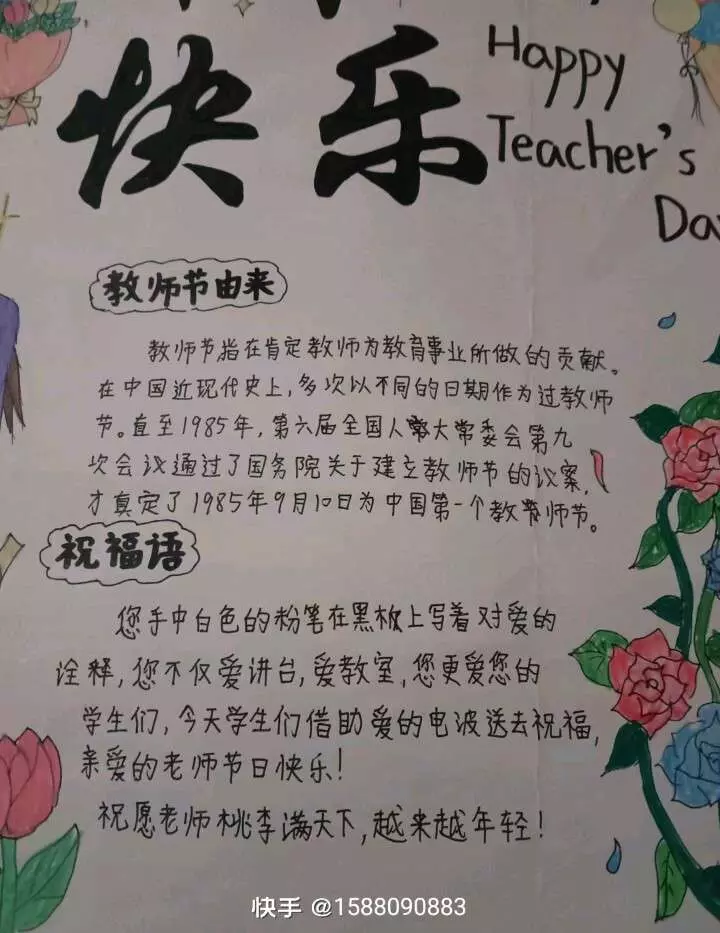 快乐
Happy
Teacher's
Da
教师节由来
教师节指在肯定教师为教育事业所做的贡献。
在中国近现代史上,多次以不同的日期作为过教师
节。直至1985年,第六届全国人大常委会第九
次会议通过了国务院关于建立教师节的议案,
才真定了1985年9月10日为中国第一个教师节。
祝福语
您手中白色的粉笔在黑板上写着对爱的
诠释,您不仅爱讲台,爱教室,您更爱您的
学生们,今天学生们借助爱的电波送去祝福,
亲爱的老师节日快乐!
祝愿老师桃李满天下,越来越年轻!
快手 @1588090883